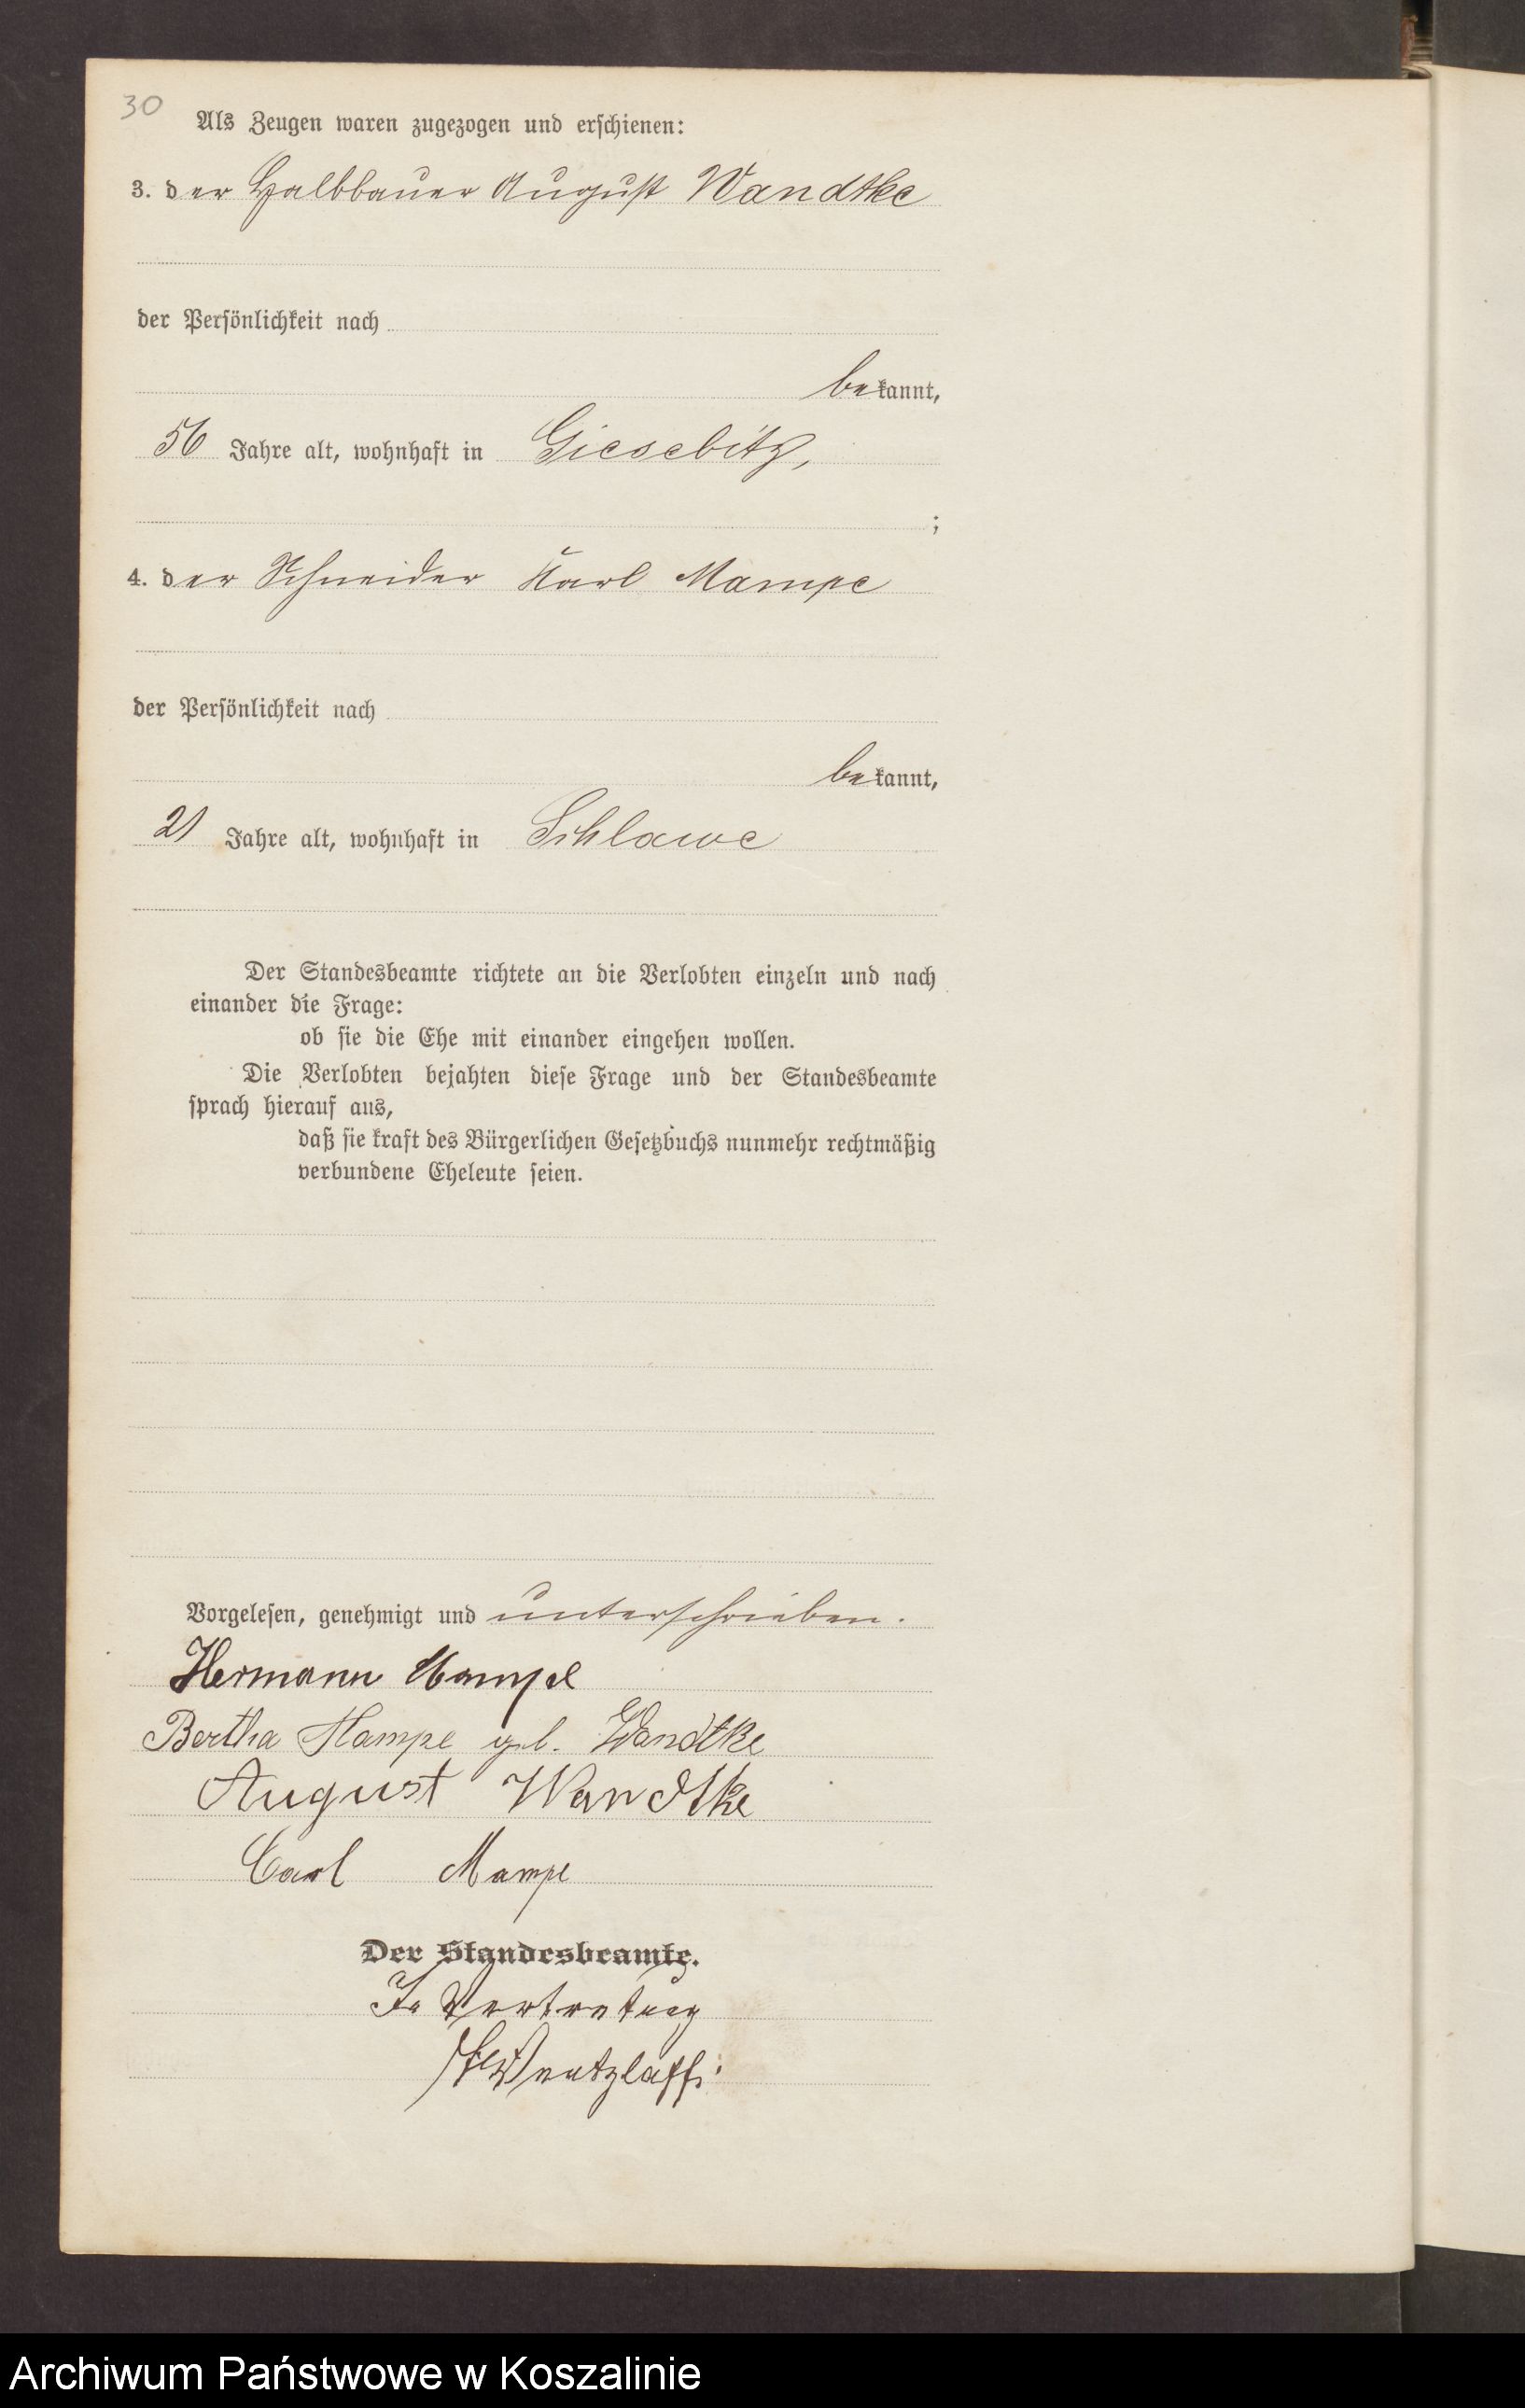 30
Als Zeugen waren zugezogen und erschienen:
3. der Halbbauer August Wandtke
der Persönlichkeit nach
bekannt,
56 Jahre alt, wohnhaft in Giesebitz,
;
4. der Schneider Karl Mampe
der Persönlichkeit nach
bekannt,
21 Jahre alt, wohnhaft in Schlawe
Der Standesbeamte richtete an die Verlobten einzeln und nach
einander die Frage:
ob sie die Ehe mit einander eingehen wollen.
Die Verlobten bejahten diese Frage und der Standesbeamte
sprach hierauf aus,
daß sie kraft des Bürgerlichen Gesetzbuchs nunmehr rechtmäßig
verbundene Eheleute seien.
Vorgelesen, genehmigt und unterschrieben.
Hermann Mampe
Bertha Mampe geb. Wandtke
August Wandtke
Carl Mampe
Der Standesbeamte.
In Vertretung
Wentzlaff
Archiwum Państwowe w Koszalinie